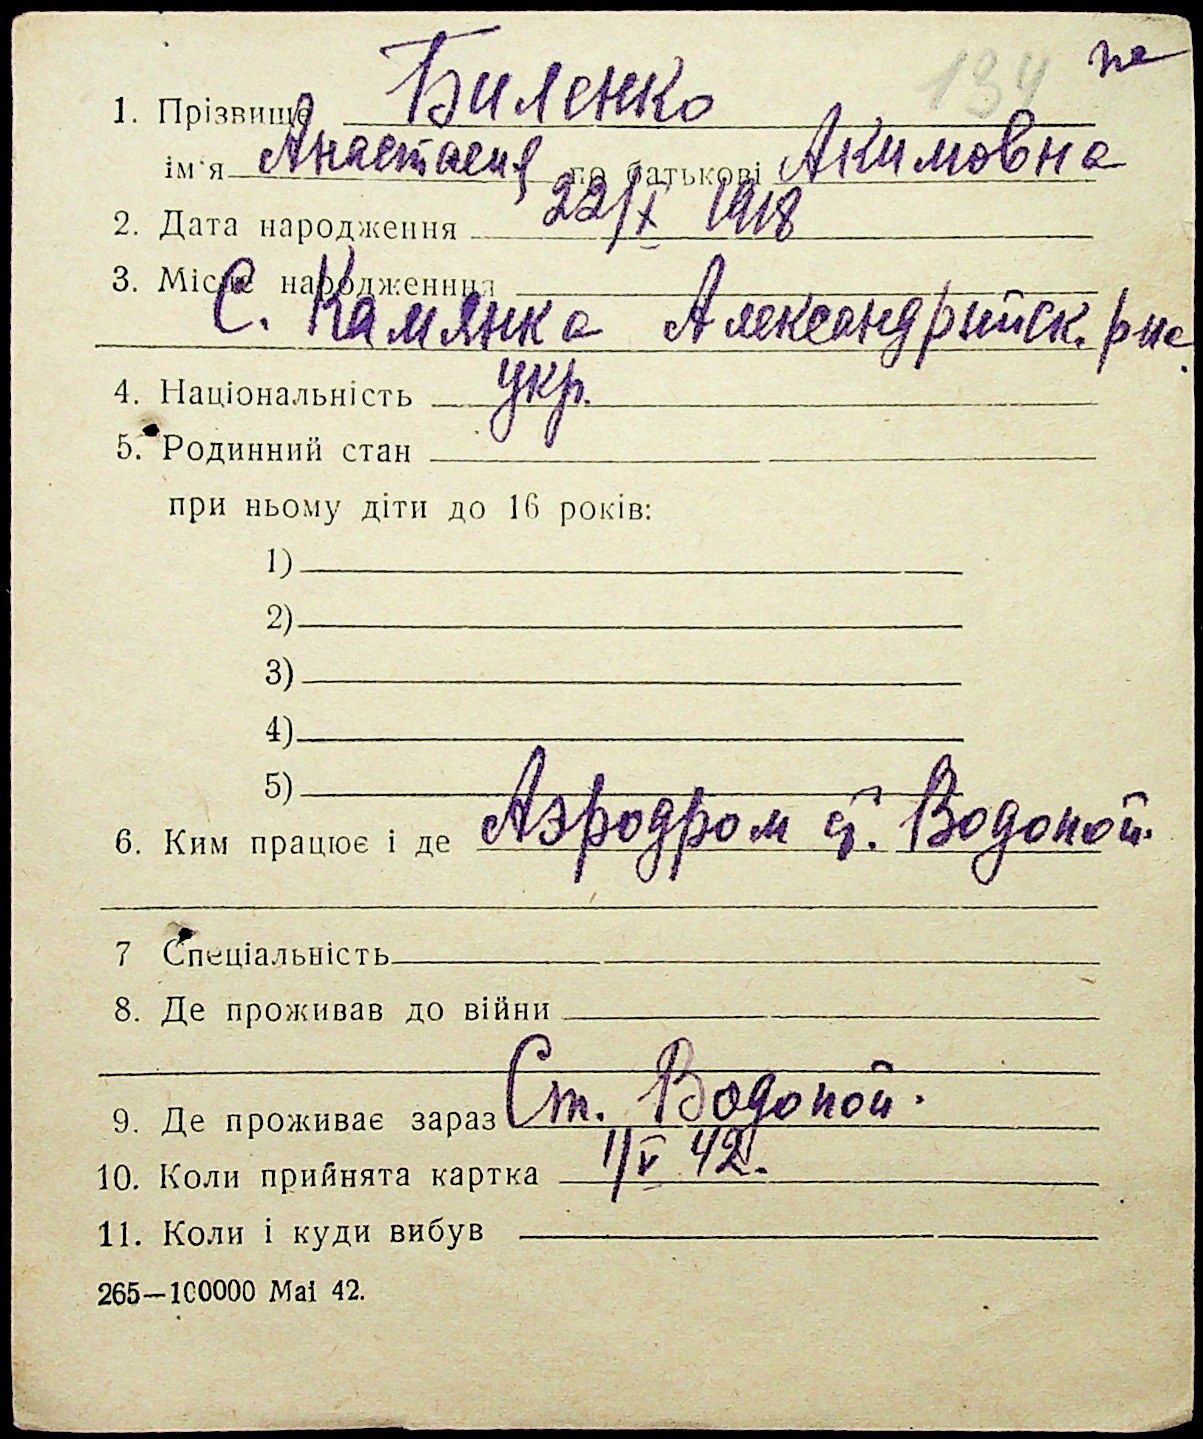 134 не
1. Прізвище Биленко
ім'я Анастасия по батькові Акимовна
2. Дата народження 22/X 1918
3. Місце народженння
С. Камянка Александрийск. р-на.
4. Національність укр.
5. Родинний стан
при ньому діти до 16 років:
1)
2)
3)
4)
5)
6. Ким працює і де Аэродром ст. Водопой.
7 Спеціальність
8. Де проживав до війни
9. Де проживає зараз Ст. Водопой.
10. Коли прийнята картка 1/V 42.
11. Коли і куди вибув
265—100000 Mai 42.